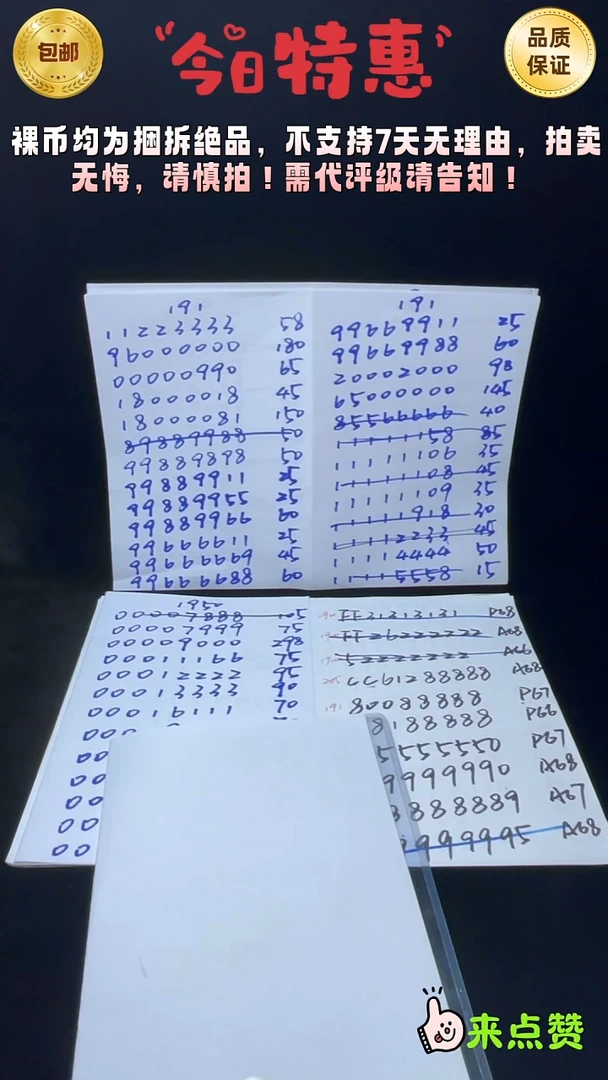 包邮
今日特惠
品质
保证
裸币均为捆拆绝品，不支持7天无理由，拍卖
无悔，请慎拍！需代评级请告知！
191
11223333 58
96000000 180
00000990 65
18000018 45
18000081 150
89889988 50
99889898 50
99889911 25
99889955 25
99889966 60
99666611 25
99666669 45
99666688 60
191
99668911 25
99669988 60
20002000 98
65000000 145
85566666 40
11111158 85
11111106 35
11111108 45
11111109 35
11111918 30
11112233 45
11114444 50
11115558 15
1950
00007888 105
00007999 75
00009000 298
00011166 75
00012222 95
00013333 90
00016111 70
000
00
00
00
00
00
FF31313131 P68
FF26222222 A68
52222222 A66
CC61288888 A68
191 80088888 P67
8188888 P66
5555550 P67
9999990 A68
8888889 A67
9999995 A68
来点赞